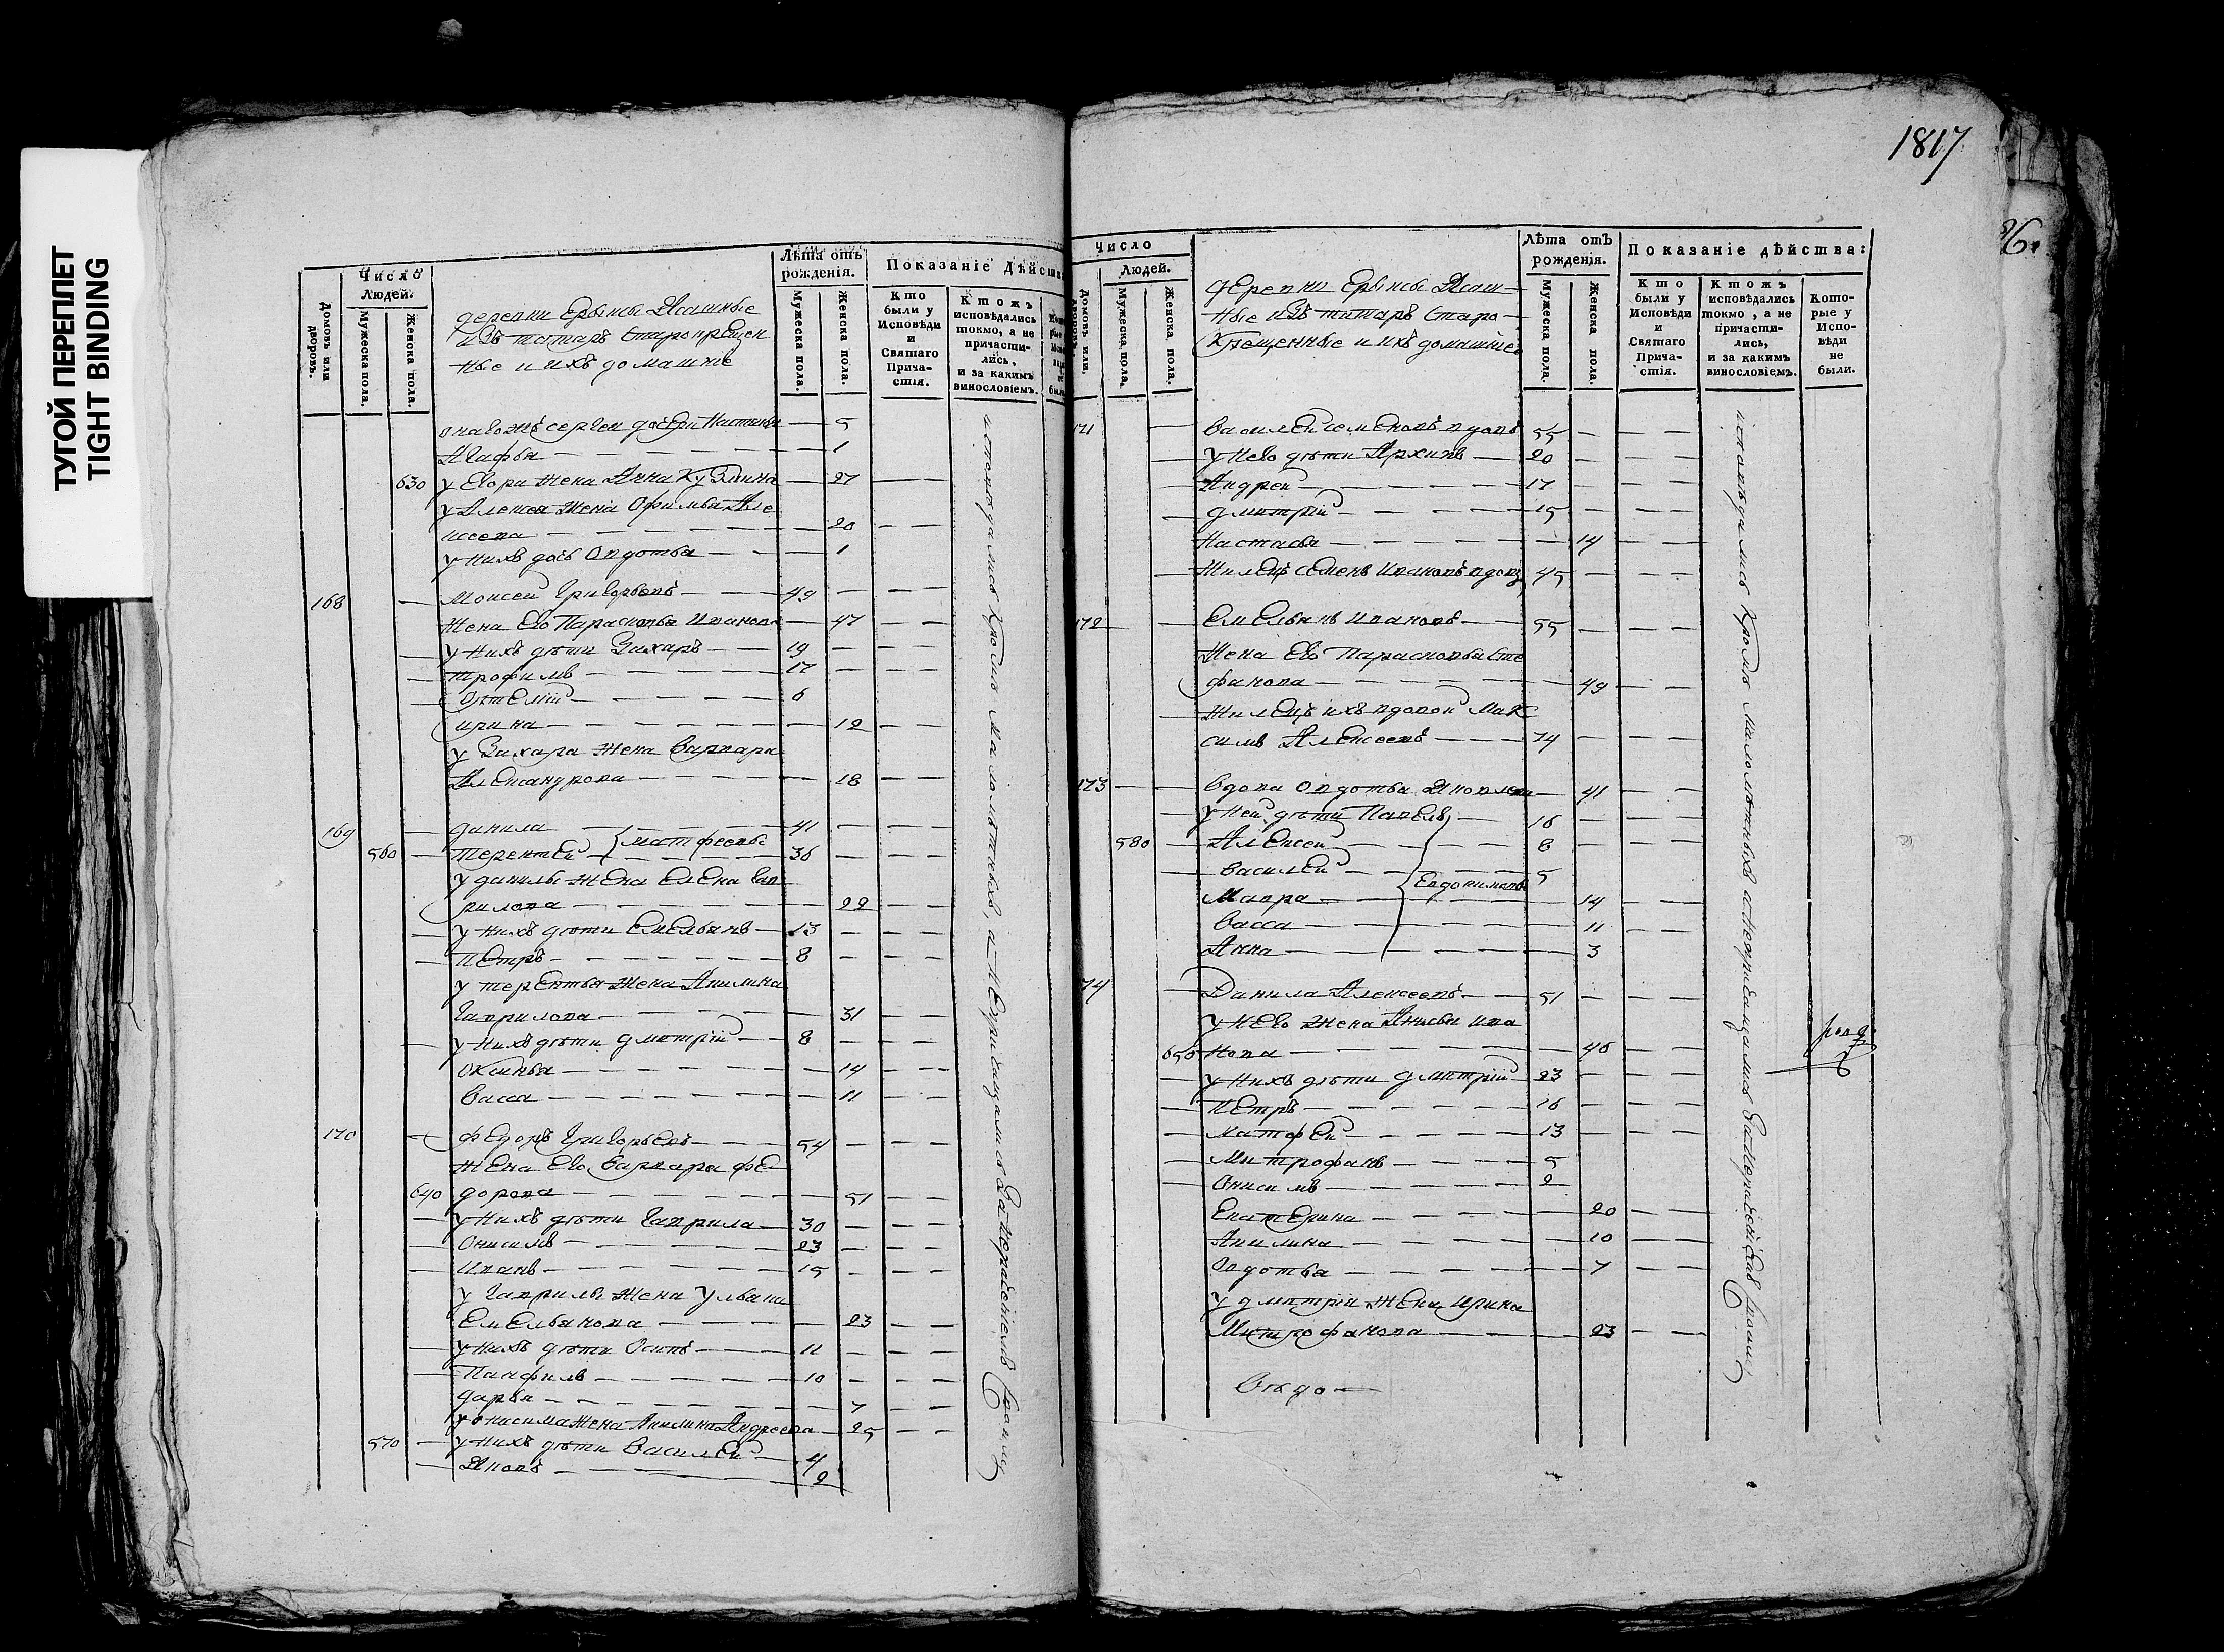 ТУГОЙ ПЕРЕПЛЕТ
TIGHT BINDING
1817
86.
Число
Людей.
Домовъ или дворовъ.
Мужеска пола.
Женска пола.
деревни Ерыксы Ясашные
изъ татаръ старокрещен
ные и ихъ домашние
Лѣта отъ рожденія.
Мужеска пола.
Женска пола.
Показаніе Дѣйств
Кто были у Исповѣди и Святаго Причастія.
Ктожъ исповѣдались токмо, а не причастились, и за какимъ винословіемъ.
онагожъ Сергея дочери Настасья — 5
Агафья — 1
630 у Егора жена Анна Кузмина — 27
у Алексея жена Офимья Але
ксеева — 20
у нихъ дочь Овдотья — 1
168 Моисей Григорьевъ — 49
жена его Парасковья Иванова — 47
у нихъ дѣти Захаръ — 19
Трофимъ — 17
6
Ирина — 12
у Захара жена Варвара
Александрова — 18
169 Данила — 41
560 Терентей — Матфеевы 36
у Данилы жена Елена Гав
рилова — 22
у нихъ дѣти Емельянъ — 13
Петръ — 8
у Терентья жена Акилина
Гаврилова — 31
у нихъ дѣти Дмитрій — 8
Оксинья — 14
Васса — 11
170 Федоръ Григорьевъ — 54
жена его Варвара Фе
640 дорова — 51
у нихъ дѣти Гаврила — 30
Онисимъ — 23
Иванъ — 15
у Гаврилы жена Ульяна
Емельянова — 23
у нихъ дѣти Осипъ — 11
Панфилъ — 10
Дарья — 7
у Онисима жена Акилина Андреева — 25
570 у нихъ дѣти Василей — 4
Яковъ — 2
исповѣдались кромѣ малолѣтныхъ, а не
Число
Людей.
Домовъ или дворовъ.
Мужеска пола.
Женска пола.
деревни Ерыксы Ясаш
ные изъ татаръ старо
крещенные и ихъ домашние
Лѣта отъ рожденія.
Мужеска пола.
Женска пола.
Показаніе дѣйства:
Кто были у Исповѣди и Святаго Причастія.
Ктожъ исповѣдались токмо, а не причастились, и за какимъ винословіемъ.
Которые у Исповѣди не были.
171 Василей Семеновъ вдовъ 55
у него дѣти Архипъ — 20
Андрей — 17
Дмитрій — 15
Настасья — 14
жилецъ Семенъ Ивановъ вдовъ 45
172 Емельянъ Ивановъ — 55
жена его Парасковья Сте
фанова — 49
жилецъ ихъ вдовой Мак
симъ Алексеевъ — 74
173 вдова Овдотья Яковлева — 41
у ней дѣти Павелъ — 16
580 Алексей — 8
Василей — 5
Мавра — 14
Васса — 11
Анна — 3
Евдокимовы
174 Данила Алексеевъ — 51
у него жена Анисья Ива
650 нова — 46
у нихъ дѣти Дмитрій — 23
Петръ — 16
Матфей — 13
Митрофанъ — 5
Онисимъ — 2
Екатерина — 20
Акилина — 10
Овдотья — 7
у Дмитрія жена Ирина
Митрофанова — 23
исповѣдались кромѣ малолѣтныхъ